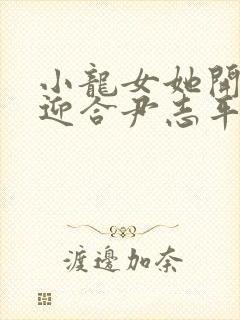 小龍女她開
迎合尹志平
渡邊加奈